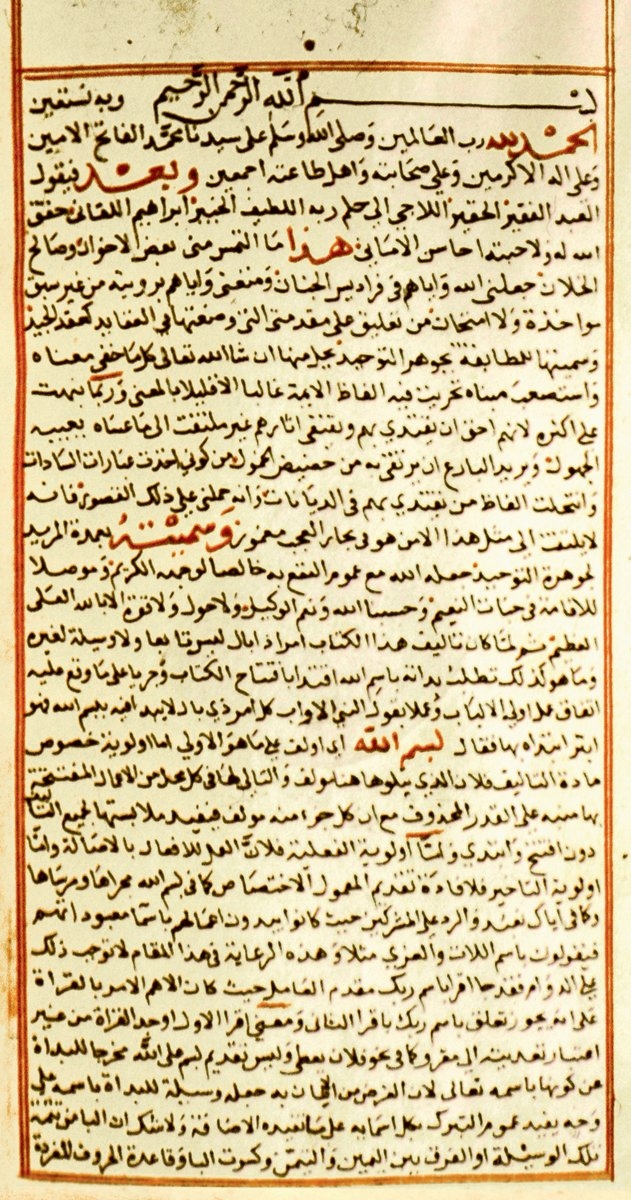 بسم الله الرحمن الرحيم وبه نستعين
الحمد لله رب العالمين وصلى الله وسلم على سيدنا محمد الفاتح الامين
وعلى اله الاكرمين وعلى صحابته واهل طاعته اجمعين وبعد فيقول
العبد الفقير الحقير اللاجي الى حلم ربه اللطيف الخبير ابراهيم اللقاني حقق
الله له ولاحبته احاسن الاماني هذا ما التمس مني بعض الاخوان وصالح
الخلان جعلني الله واياهم في فراديس الجنان ومتعني واياهم برويته من غير سبق
مواخذة ولا امتحان من تعليق على مقدمتي التي وضعتها في العقايد كعقد الجيد
وسميتها للمطابقة بجوهرة التوحيد يحل منها ان شا الله تعالى كل ما خفي معناه
واستصعب مبناه تحريت فيه الفاظ الايمة غالبا الا قليلا بالمعنى وربما نبهت
على اكثره لانهم احق ان يقتدي بهم ونقتفي اثارهم غير ملتفت الى ما عساه يعيبه
الجهول ويريد البارع ان يرتقي به من حضيض الخمول من كوني اخذت عبارات السادات
وانتحلت الفاظ من يقتدي بهم في الديانات وانه حملني على ذلك القصور فانه
لا يلتفت الى مثل هذا الا من هو في بحار العجب مغمور وسميته بعمدة المريد
لجوهرة التوحيد جعله الله مع عموم النفع به خالصا لوجهه الكريم وموصلا
للاقامة في جنات النعيم وحسبنا الله ونعم الوكيل ولا حول ولا قوة الا بالله العلي
العظيم ثم لما كان تاليف هذا الكتاب امرا ذا بال ليس تابعا ولا وسيلة لغيره
وما هو كذلك تطلب بداته باسم الله اقتدا بافتتاح الكتاب وجريا على ما وقع عليه
اتفاق اولي الالباب وعملا بقول النبي الاواب كل امر ذي بال لا يبدا فيه ببسم الله فهو
ابتر ابتداه بها فقال بسم الله اي اولف على ما هو الاولي اما اولوية خصوص
مادة التاليف فلان الذي يتلوها هنا مولف والتالي لها في كل محل من الاعمال المفتتحة
بها منبه على القدر المحذوف مع ان كل جزء منه مولف فيفيد ملابستها لجميع التاليف
دون افتتح وابتدي ولما اولوية الفعلية فلان العمل للافعال بالاصالة واما
اولوية التاخير فلافادة تقديم المعمول الاختصاص كما في بسم الله مجراها ومرساها
وكما في اياك نعبد والرد على المشركين حيث كانوا يبدون اعمالهم باسما معبوداتهم
فيقولون باسم اللات والعزي مثلا وهذه الرعاية في هذا المقام لا توجب ذلك
على الدوام فقد جا اقرا باسم ربك مقدم العامل حيث كان الاهم الامر بالقراة
على انه يجوز تعلق باسم ربك باقرا الثاني ومعنى اقرا الاول اوجد القراة من غير
اعتبار تعديته الى مقرو كما في نحو فلان يعطي وليس تقديم بسم على الله مخرجا للبداة
عن كونها باسمه تعالى لان الغرض من به جعله وسيلة للبداة باسمه على
وجه يفيد عموم التبرك بكل اسمايه على ما تفيده الاضافة ولا شك ان البا من تتمة
تلك الوسيلة او الفرق بين اليمين والتيمن وكسرت البا وقاعدة الحروف المفردة